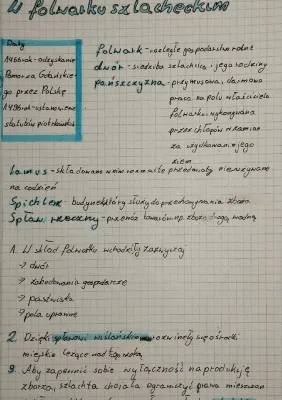 W folwarku szlacheckim
Daty
1466rok-odzyskanie
Pomorza Gdańskie-
go przez Polskę
1496rok-ustanowienie
statutów piotrkowskich
folwark-rozległe gospodarstwo rolne
dwór- siedziba szlachcica i jego rodziny
pańszczyzna-przymusowa, darmowa
praca na polu właściciela
folwarku, wykonywana
przez chłopów w zamian
za użytkowanie jego
ziem
Lamus- składowano w nim cenne ale przedmioty nieużywane
na codzień
Spichlerz- budynek który służy do przechowywania zboża
Spław rzeczny-przewóz towarów np. zboża drogą wodną
1. W skład folwarku wchodziły zazwyczaj
→ dwór
→ zabudowania gospodarcze
→ pastwiska
→ pola uprawne
2. Dzięki spławowi wiślańskiemu rozwinęły się ośrodki
miejskie leżące nad tą rzeką
3. Aby zapewnić sobie wyłączność na produkcję
zboża, szlachta chciała ograniczyć prawa mieszczan